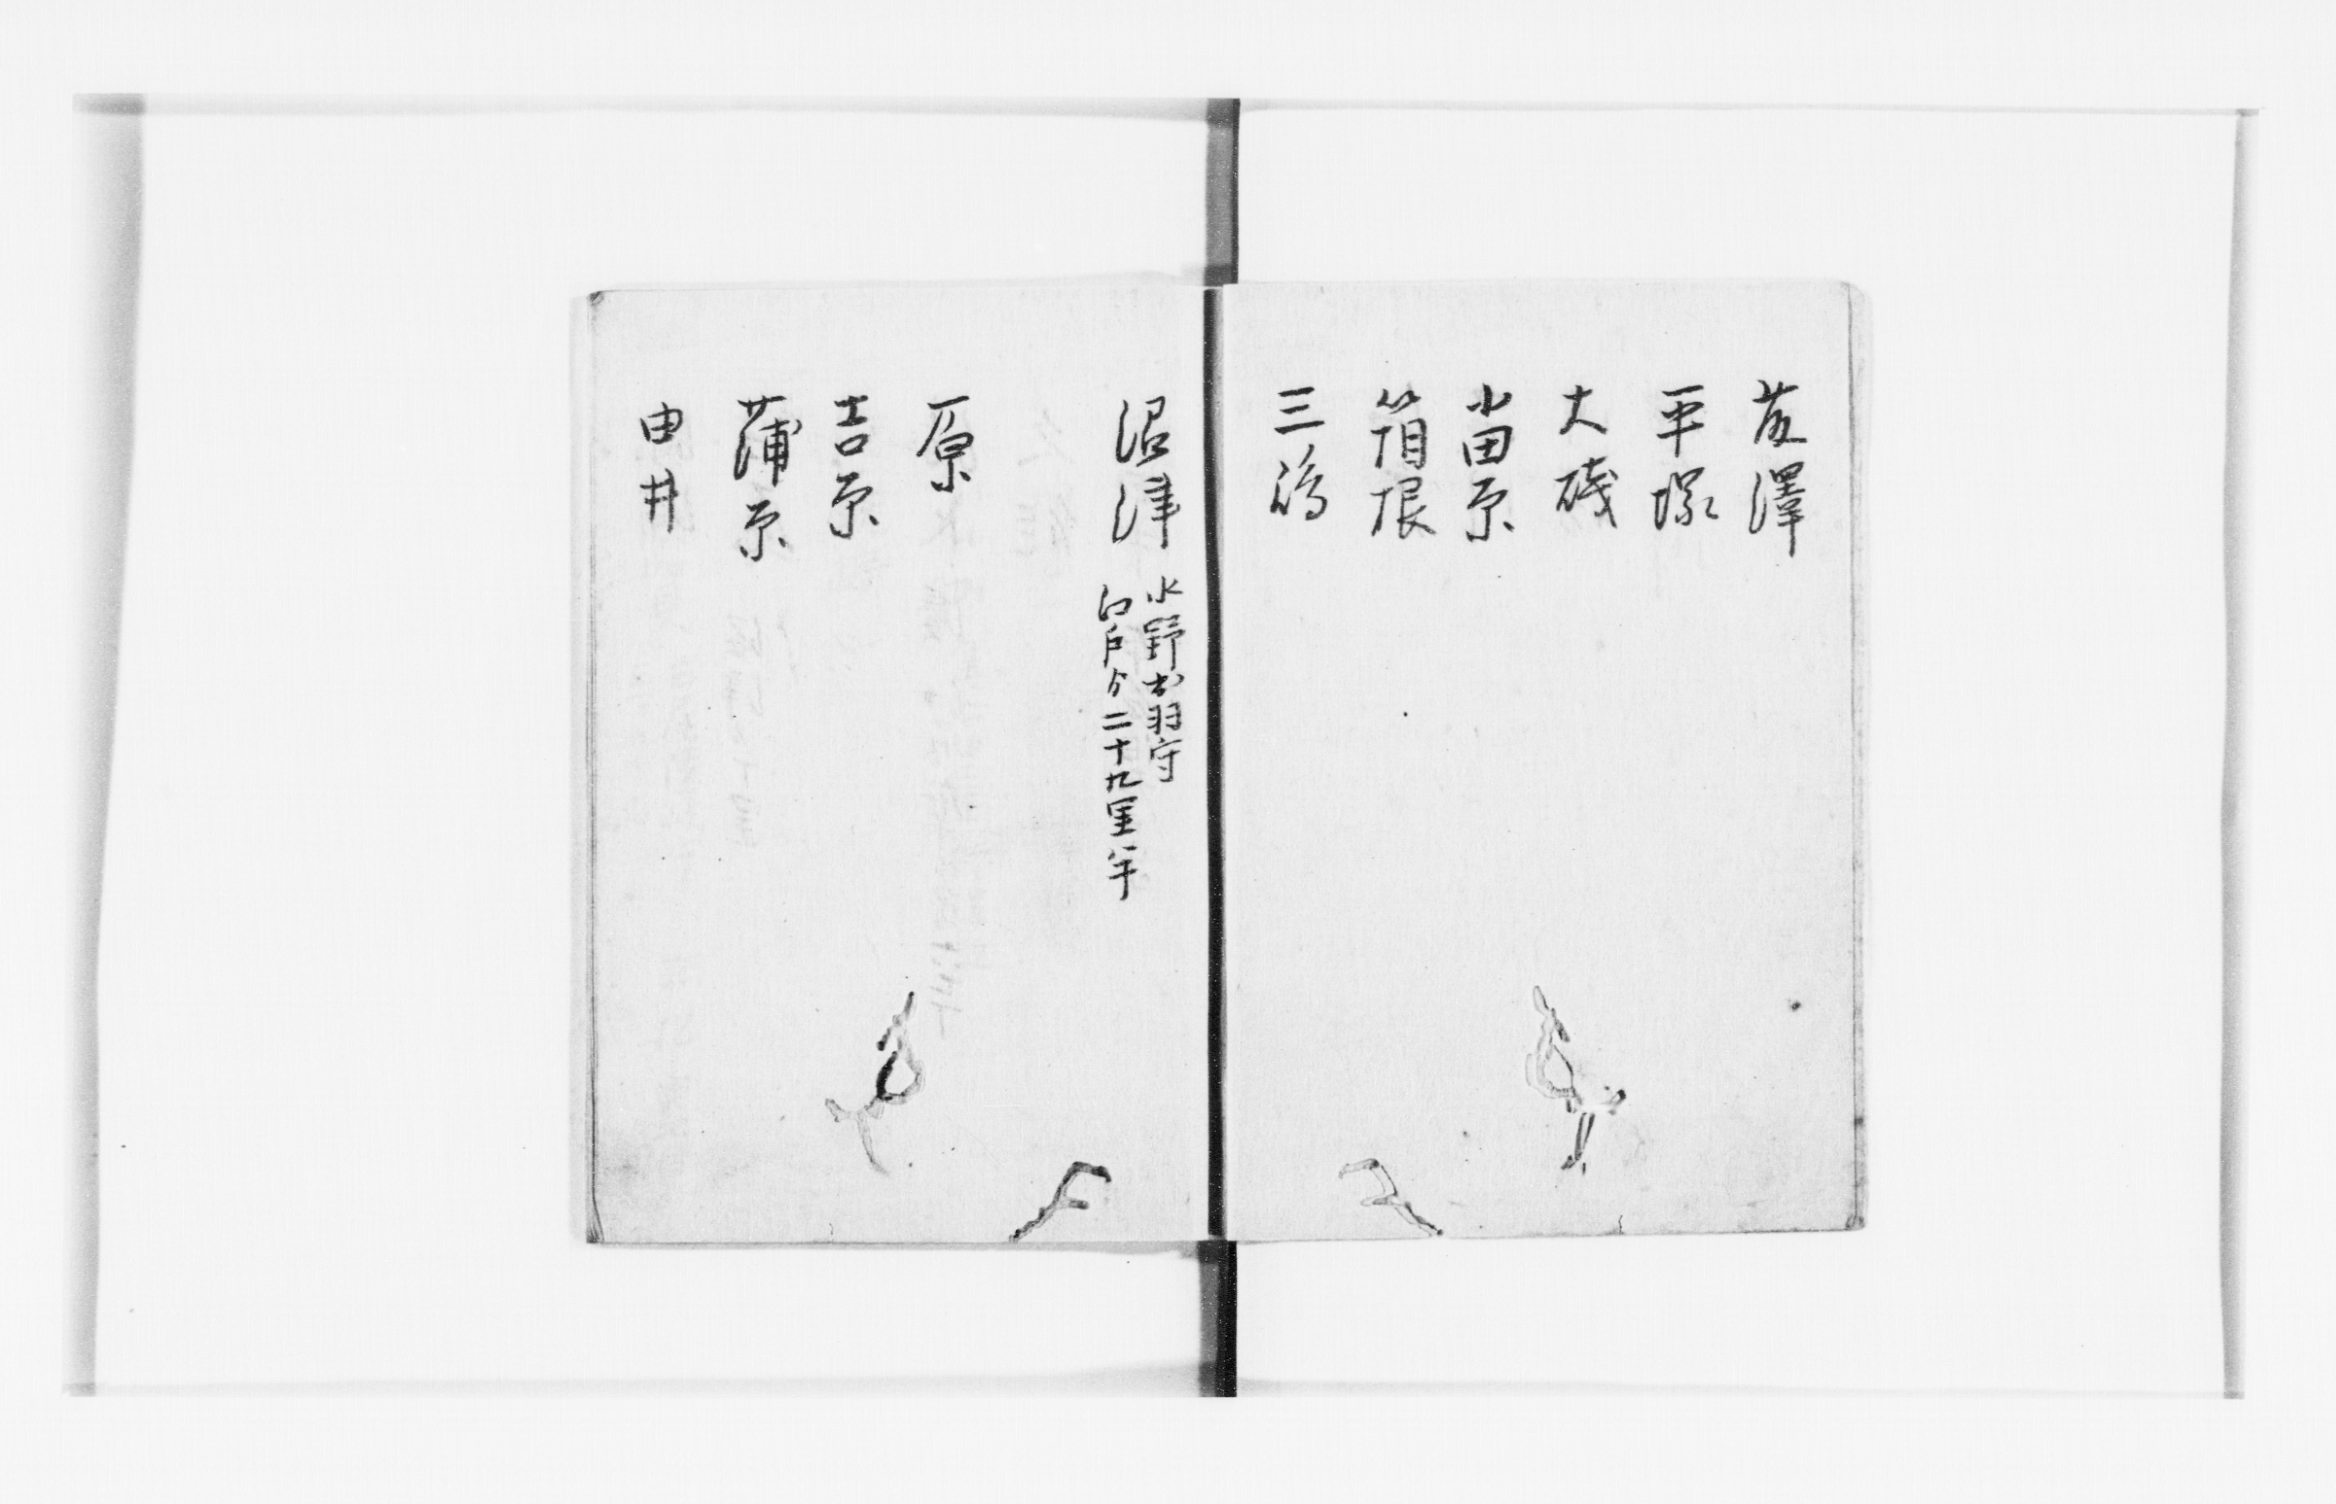 藤澤
平塚
大磯
小田原
箱根
三嶋
沼津
水野出羽守
江戸ゟ二十九里半
原
吉原
蒲原
由井